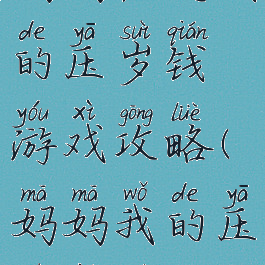 de yā suì qián
的压岁钱
yóu xì gōng lüè
游戏攻略(
mā mā wǒ de yā
妈妈我的压